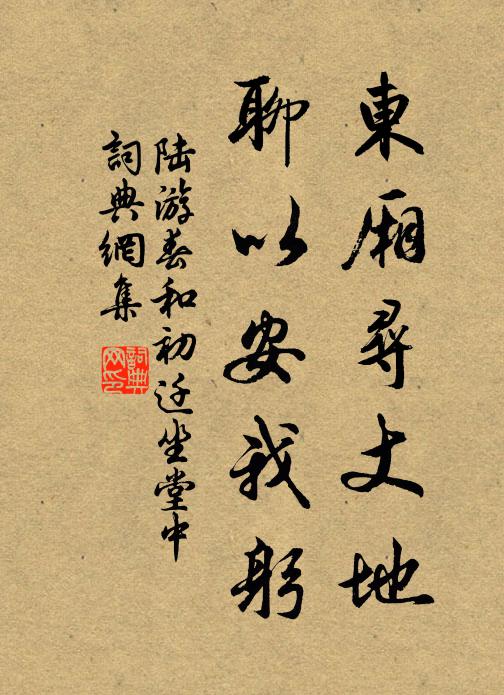 東廂尋丈地
聊以安我躬
陆游春和初迁坐堂中
詞典網集